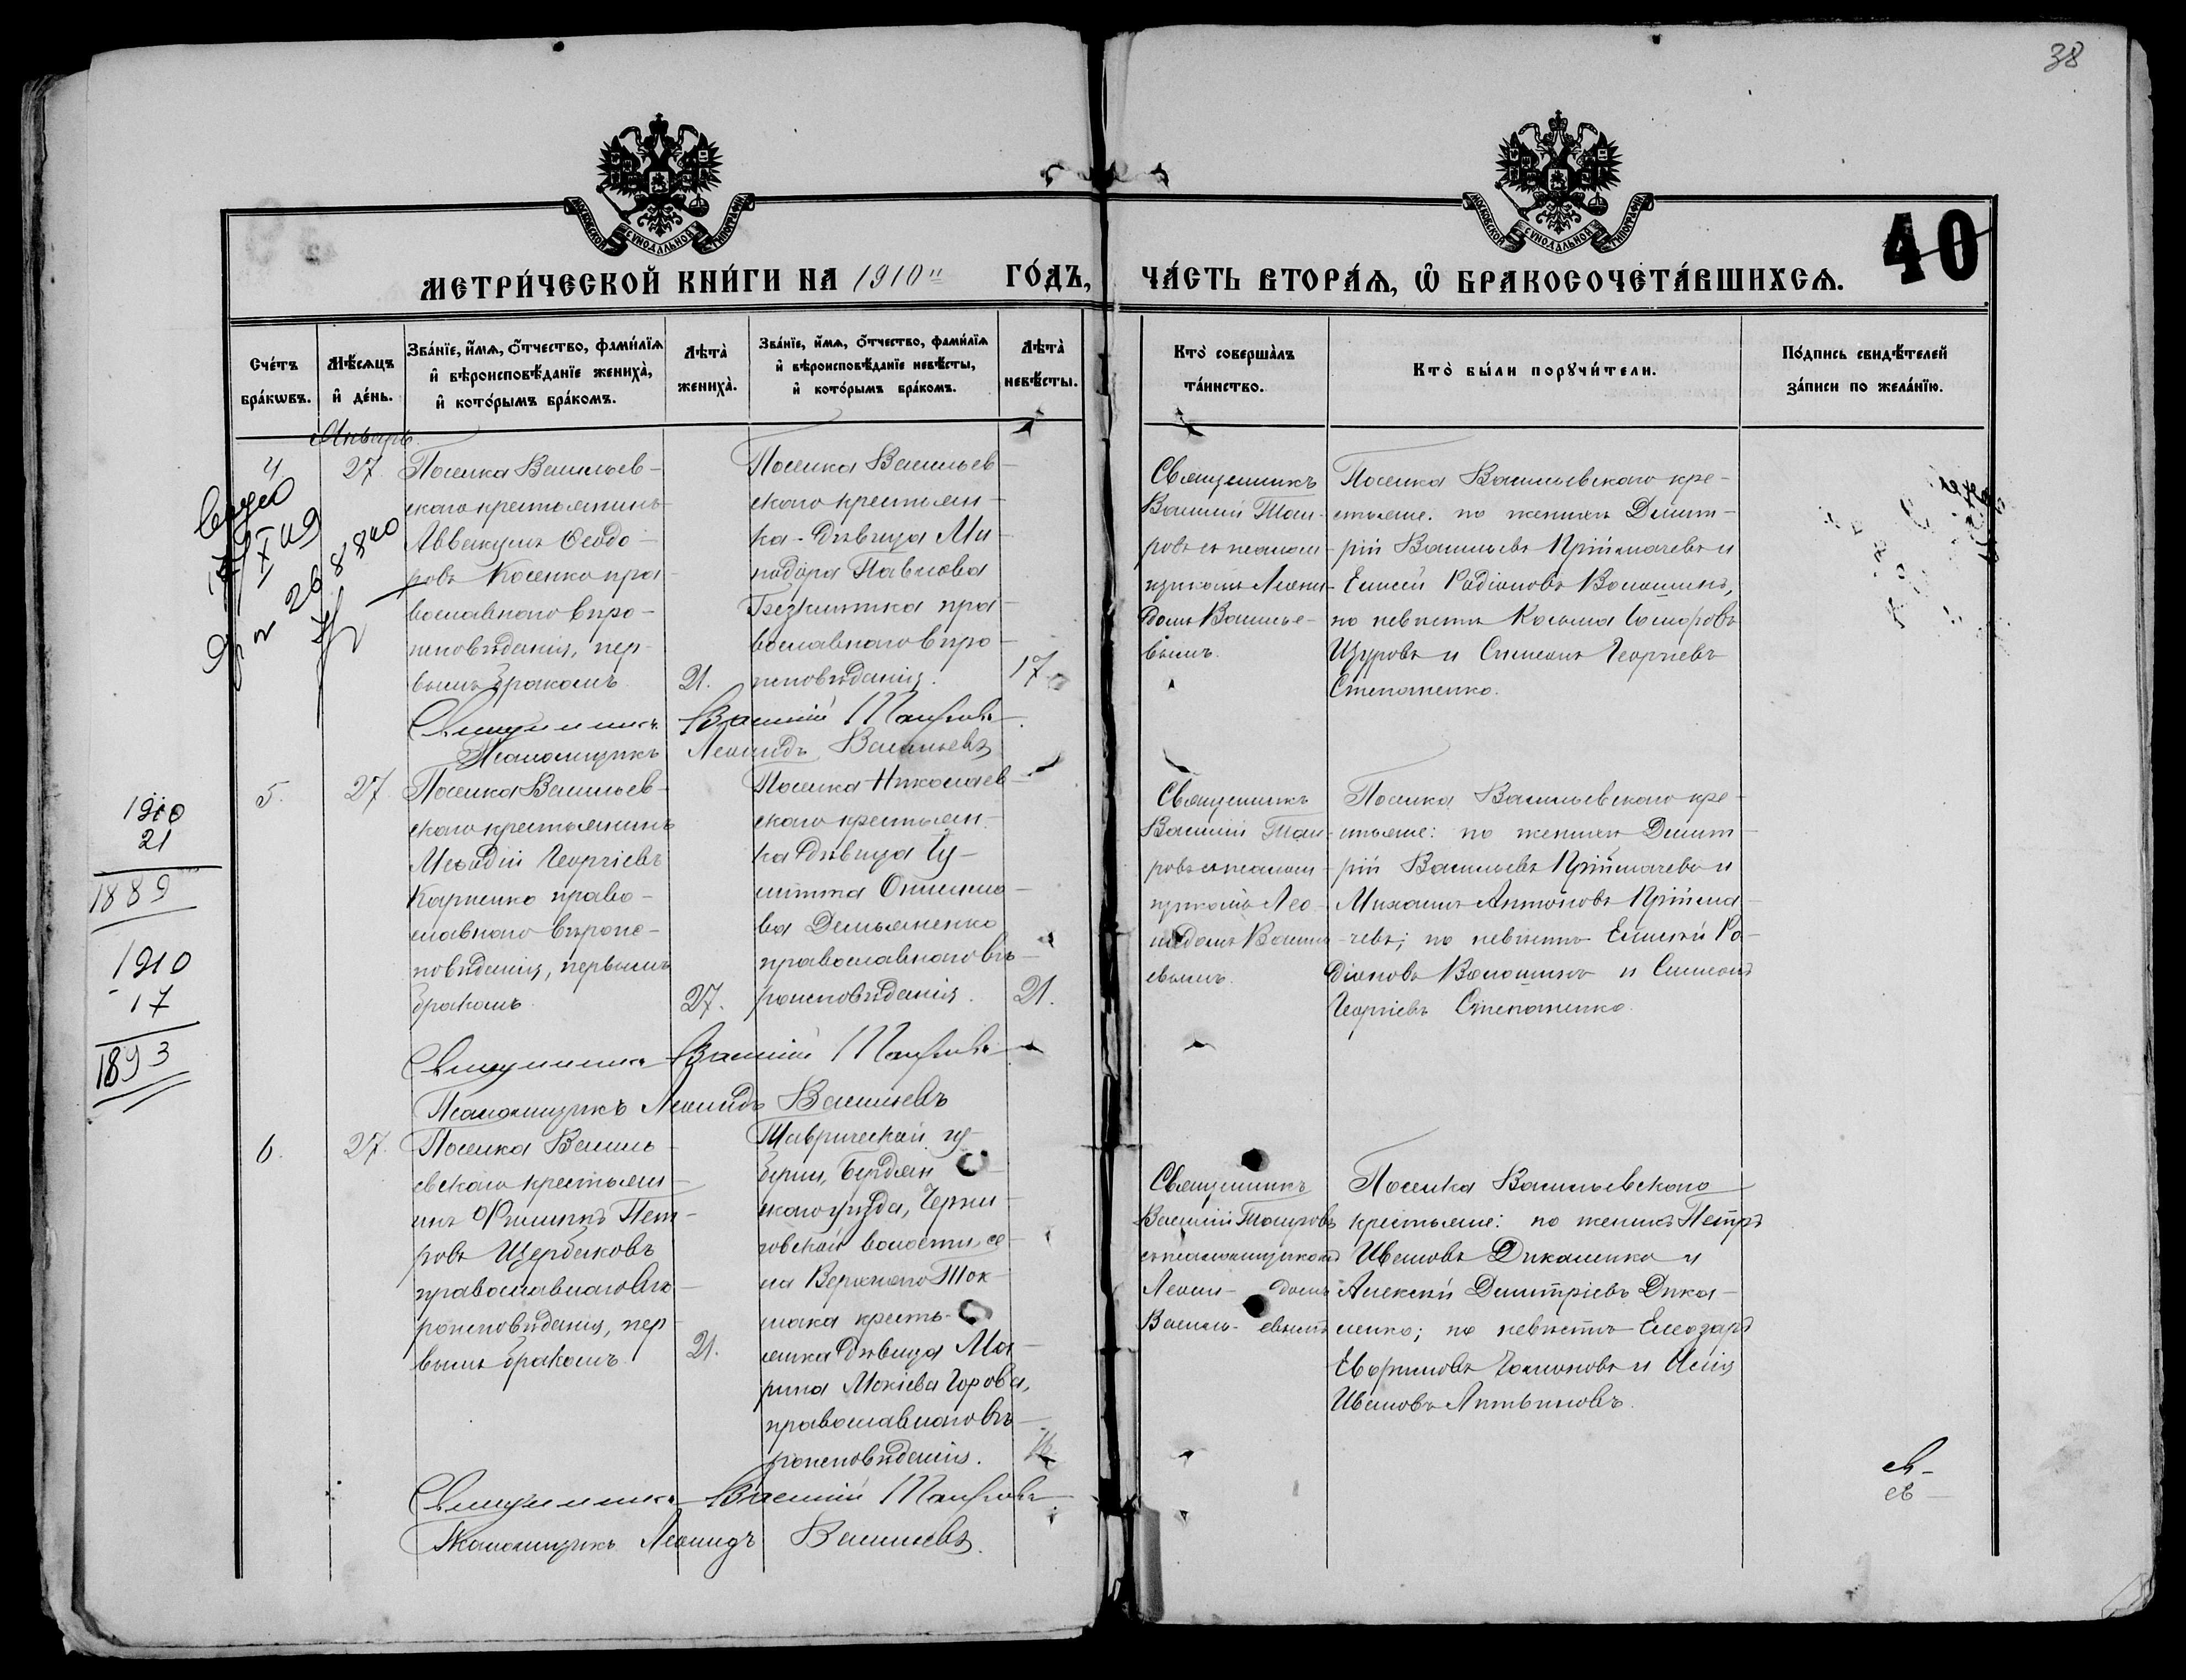 38
40
МЕТРИ́ЧЕСКОЙ КНИ́ГИ НА 1910й ГО́ДЪ,
ЧА́СТЬ ВТОРА́Ѧ, Ѽ БРАКОСОЧЕТА́ВШИХСѦ.
Сче́тъ бра́кѡвъ.
Мѣ́сѧцъ и҆ де́нь.
Зва́нїе, и҆́мѧ, ѻ҆́тчество, фами́лїѧ
и҆ вѣроисповѣ́данїе жениха̀,
и҆ кото́рымъ бра́комъ.
Лѣта̀ жениха̀.
Зва́нїе, и҆́мѧ, ѻ҆́тчество, фами́лїѧ
и҆ вѣроисповѣ́данїе невѣ́сты,
и҆ кото́рымъ бра́комъ.
Лѣта̀ невѣ́сты.
Кто̀ соверша̀лъ та́инство.
Кто̀ бы́ли порꙋчи́тели.
По́дпись свидѣ́телей
за́писи по жела́нїю.
Январь
4
27
Поселка Васильев-
скаго крестьянинъ
Аввакумъ Ѳеодо-
ровъ Косенко пра-
вославнаго вѣро-
исповѣданія, пер-
вымъ бракомъ
21.
Поселка Васильев-
скаго крестьян-
ка-дѣвица Ми-
нодора Павлова
православнаго вѣро-
исповѣданія.
17
Священникъ
Василій Таи-
ровъ съ псалом-
щикомъ Леони-
домъ Василье-
вымъ.
Поселка Васильевскаго кре-
стьяне: по женихѣ Димит-
рій Васильевъ Пріймачевъ и
Елисей Родіоновъ Волошинъ,
по невѣстѣ Косьма
Щуровъ и Симеонъ Георгіевъ
Степаненко.
Священникъ Василій Таировъ
Псаломщикъ Леонидъ Васильевъ
5.
27
Поселка Васильев-
скаго крестьянинъ
Меѳодій Георгіевъ
Карпенко право-
славнаго вѣроис-
повѣданія, первымъ
бракомъ
27.
Поселка Николаев-
скаго крестьян-
ка дѣвица Іу-
литта Онисимо-
ва Демьяненко
православнаго вѣ-
роисповѣданія.
21.
Священникъ
Василій Таи-
ровъ съ псалом-
щикомъ Лео-
нидомъ Василь-
евымъ.
Поселка Васильевскаго кре-
стьяне: по женихѣ Димит-
рій Васильевъ Пріймачевъ и
Михаилъ Антоновъ Прійма-
чевъ; по невѣстѣ Елисей Ро-
діоновъ Волошинъ и Симеонъ
Георгіевъ Степаненко.
Священникъ Василій Таировъ
Псаломщикъ Леонидъ Васильевъ
6.
27.
Поселка Василь-
евскаго крестьян-
инъ Филиппъ Пет-
ровъ Щербаковъ
православнаго вѣ-
роисповѣданія, пер-
вымъ бракомъ
21.
Таврической гу-
берніи, Бердян-
скаго уѣзда, Черни-
говской волости, се-
ла Верхняго Ток-
мака кресть-
янка дѣвица Ма-
рина Мокіева Горова,
православнаго вѣ-
роисповѣданія.
Священникъ
Василій Таировъ
съ псаломщикомъ
Леони- домъ
Василь- евымъ
Поселка Васильевскаго
крестьяне: по женихѣ Петръ
Ивановъ Дикаленко и
Алексѣй Димитріевъ Дика-
ленко; по невѣстѣ Елеазаръ
Ивановъ
Священникъ Василій Таировъ
Псаломщикъ Леонидъ Васильевъ
1910
21
1889
1910
17
1893
268840